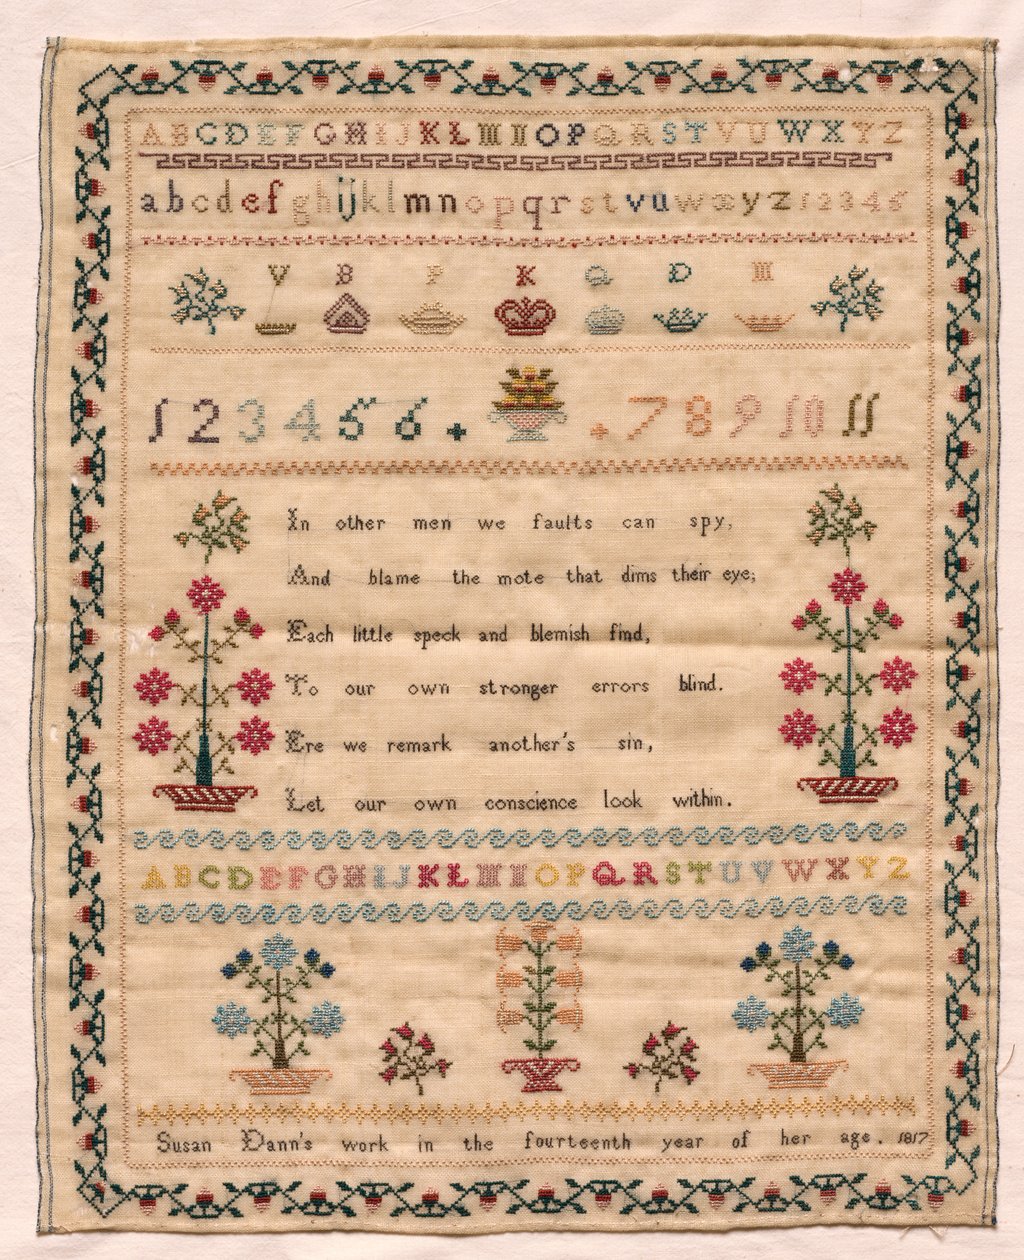 ABCDEFGHIJKLMNOPQRSTVUWXYZ
abcdefghijklmnopqrstvuwxyz123456
V B P K Q D M
123456.7891011
In other men we faults can spy,
And blame the mote that dims their eye;
Each little speck and blemish find,
To our own stronger errors blind.
Ere we remark another's sin,
Let our own conscience look within.
ABCDEFGHIJKLMNOPQRSTUVWXYZ
Susan Dann's work in the fourteenth year of her age. 1817